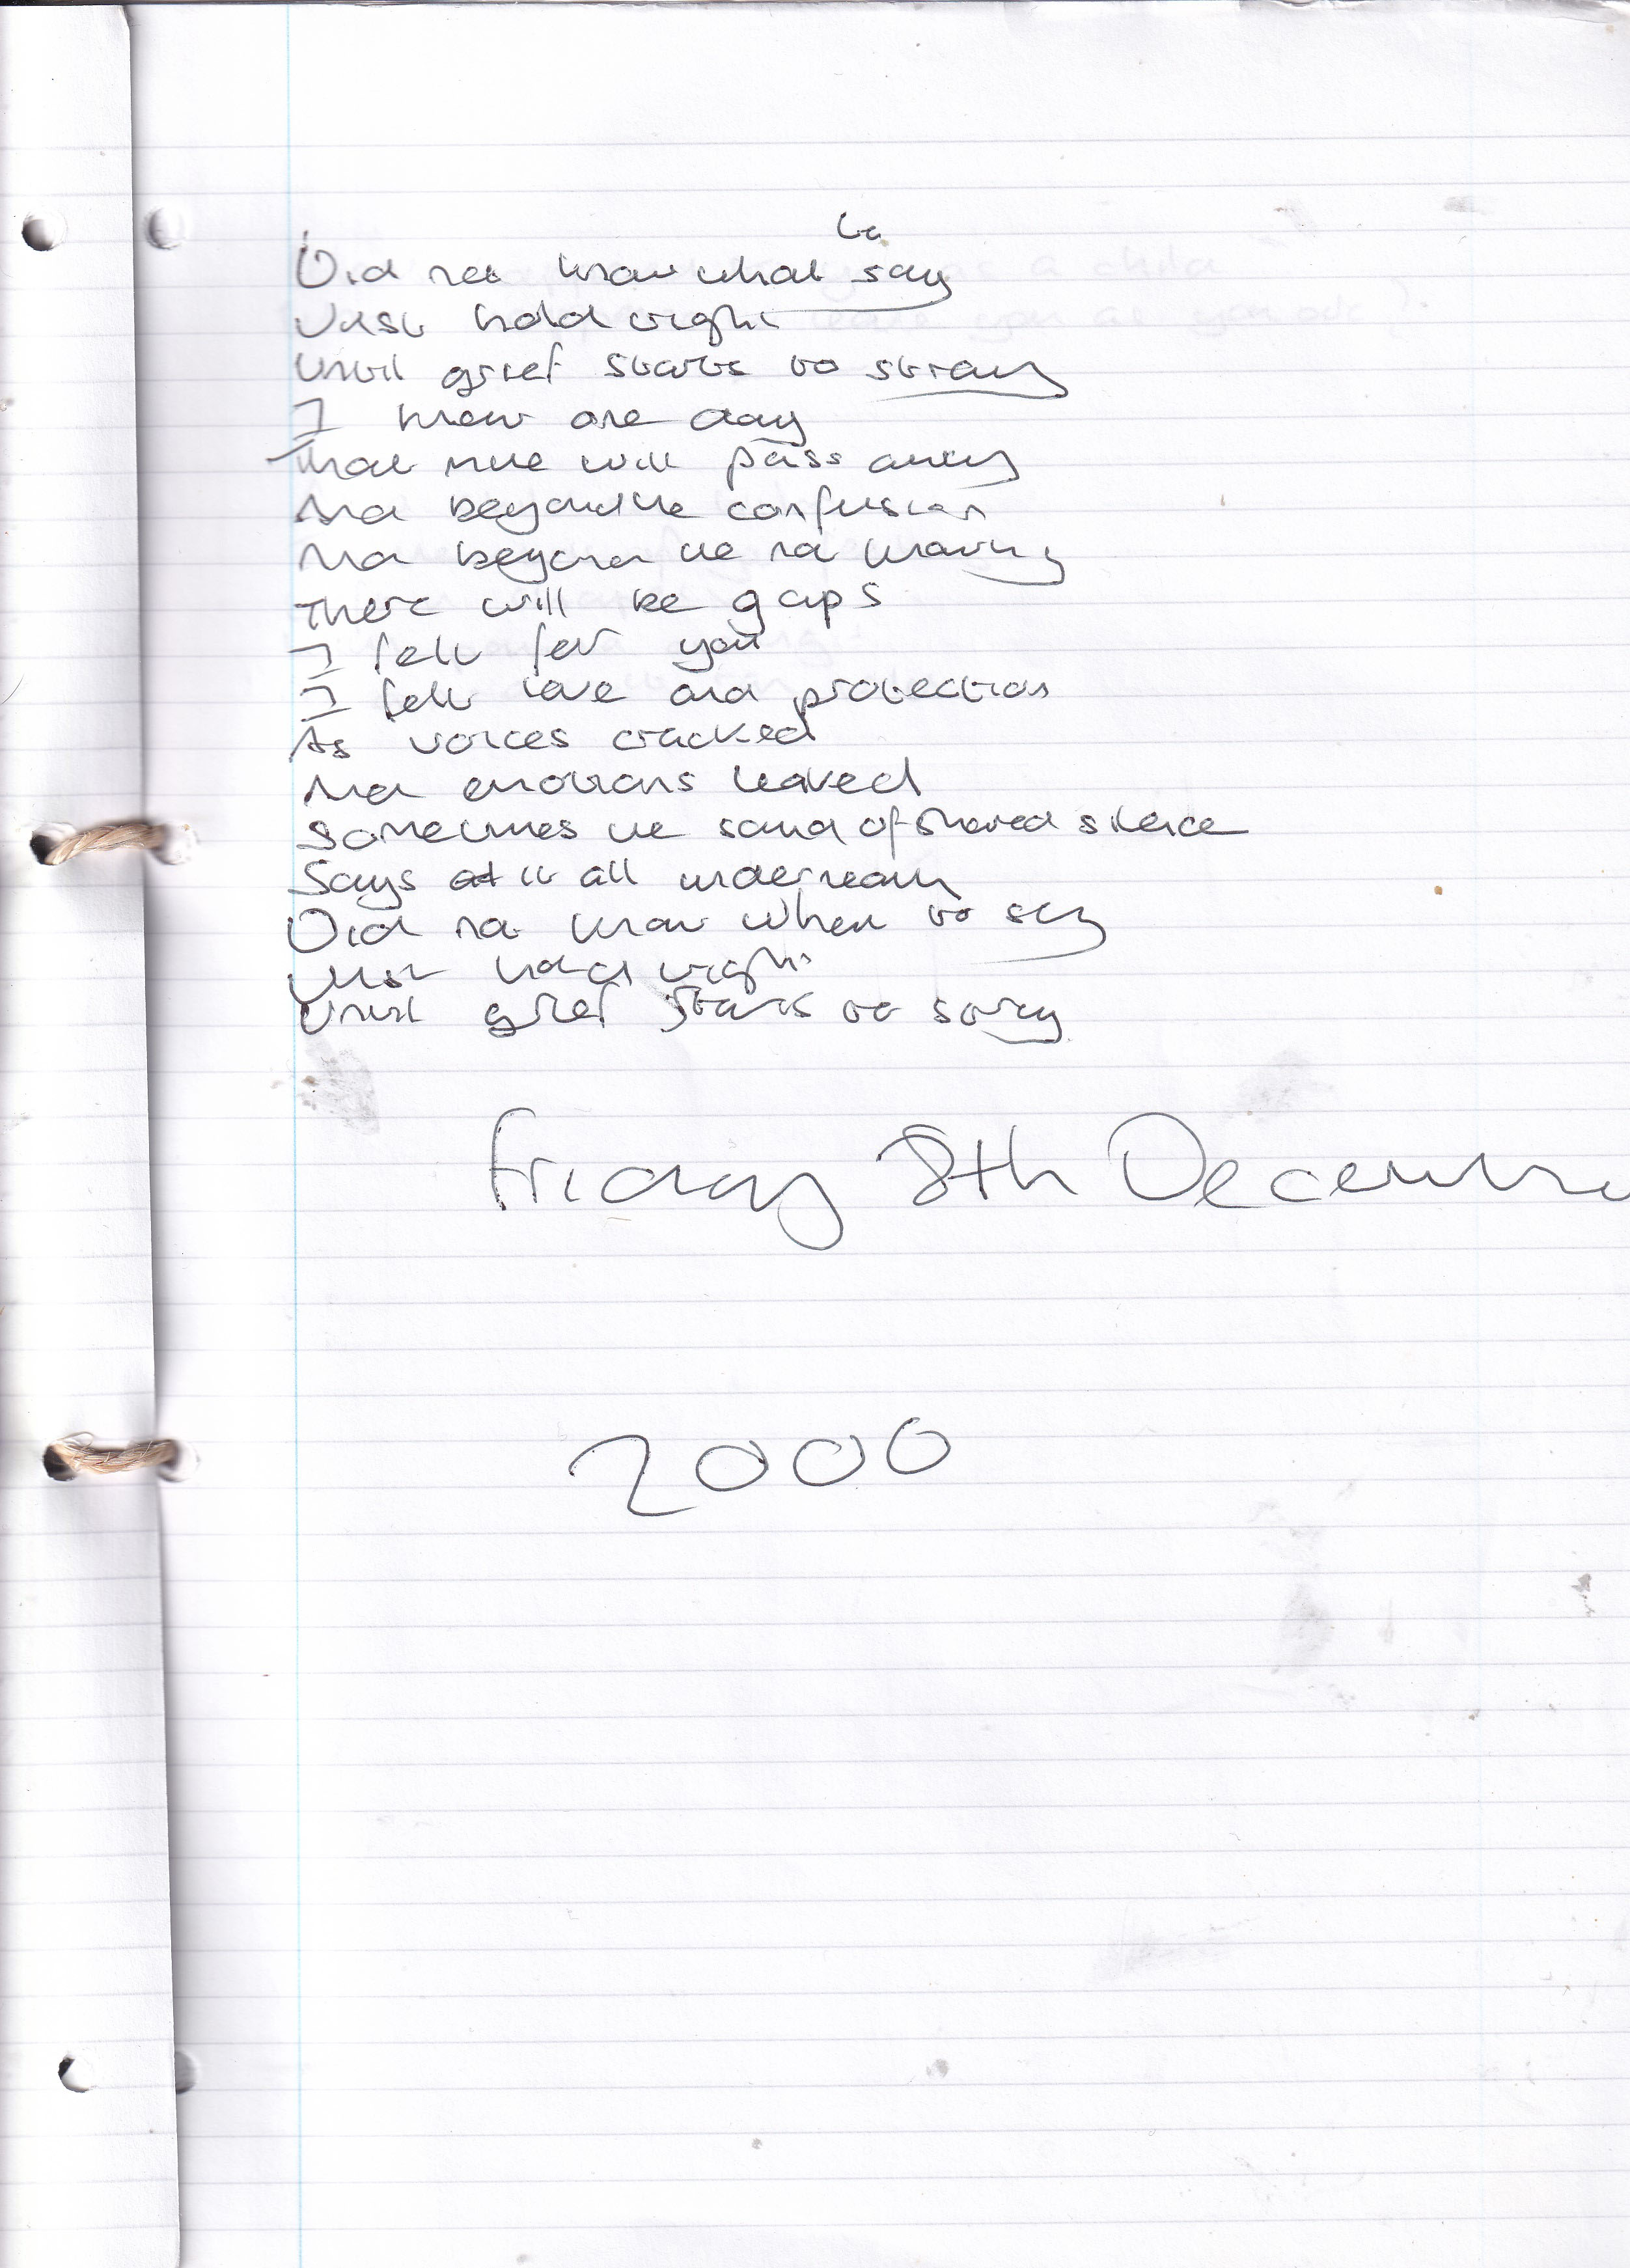 to
Did not know what say
Just hold tight
Until grief starts to stray
I knew one day
That time will pass away
And beyond the confusion
And beyond the not knowing
There will be gaps
I felt for you
I felt love and protection
As voices cracked
And emotions leaked
Sometimes the sound of shared silence
Says it all underneath
Did not know when to say
Just hold tight
Until grief starts to stray
Friday 8th December
2000